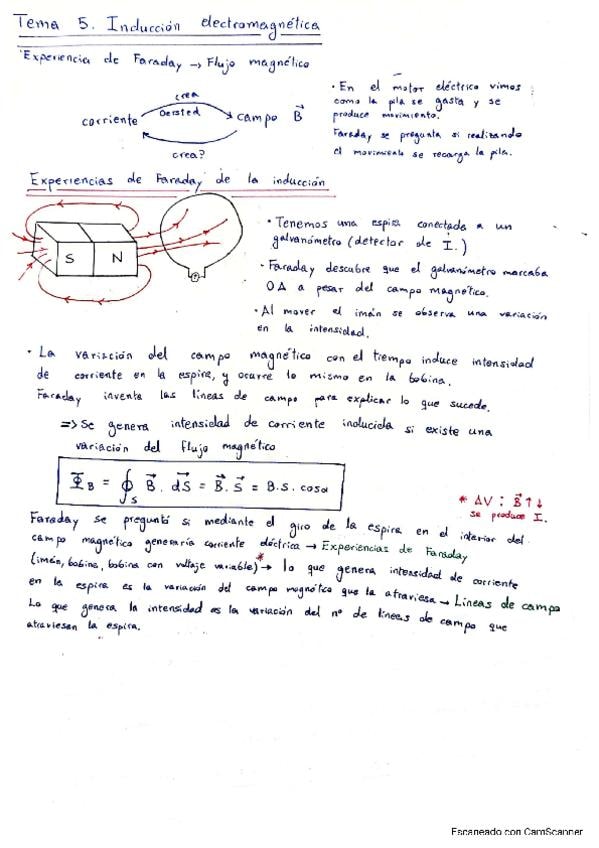 Tema 5. Inducción electromagnética
Experiencia de Faraday → Flujo magnético
crea
corriente Oersted campo B⃗
crea?
· En el motor eléctrico vimos
como la pila se gasta y se
produce movimiento.
Faraday se pregunta si realizando
el movimiento se recarga la pila.
Experiencias de Faraday de la inducción
S N
· Tenemos una espira conectada a un
galvanómetro (detector de I.)
· Faraday descubre que el galvanómetro marcaba
0A a pesar del campo magnético.
· Al mover el imán se observa una variación
en la intensidad.
· La variación del campo magnético con el tiempo induce intensidad
de corriente en la espira, y ocurre lo mismo en la bobina.
Faraday inventa las líneas de campo para explicar lo que sucede.
=> Se genera intensidad de corriente inducida si existe una
variación del flujo magnético
Φ_B = ∮_S B⃗ . dS⃗ = B⃗ . S⃗ = B.S. cosα
* ΔV : B⃗↑↓
se produce I.
Faraday se preguntó si mediante el giro de la espira en el interior del
campo magnético generaría corriente eléctrica → Experiencias de Faraday
(imán, bobina, bobina con voltaje variable)* → lo que genera intensidad de corriente
en la espira es la variación del campo magnético que la atraviesa → Líneas de campo
Lo que genera la intensidad es la variación del nº de líneas de campo que
atraviesan la espira.
Escaneado con CamScanner